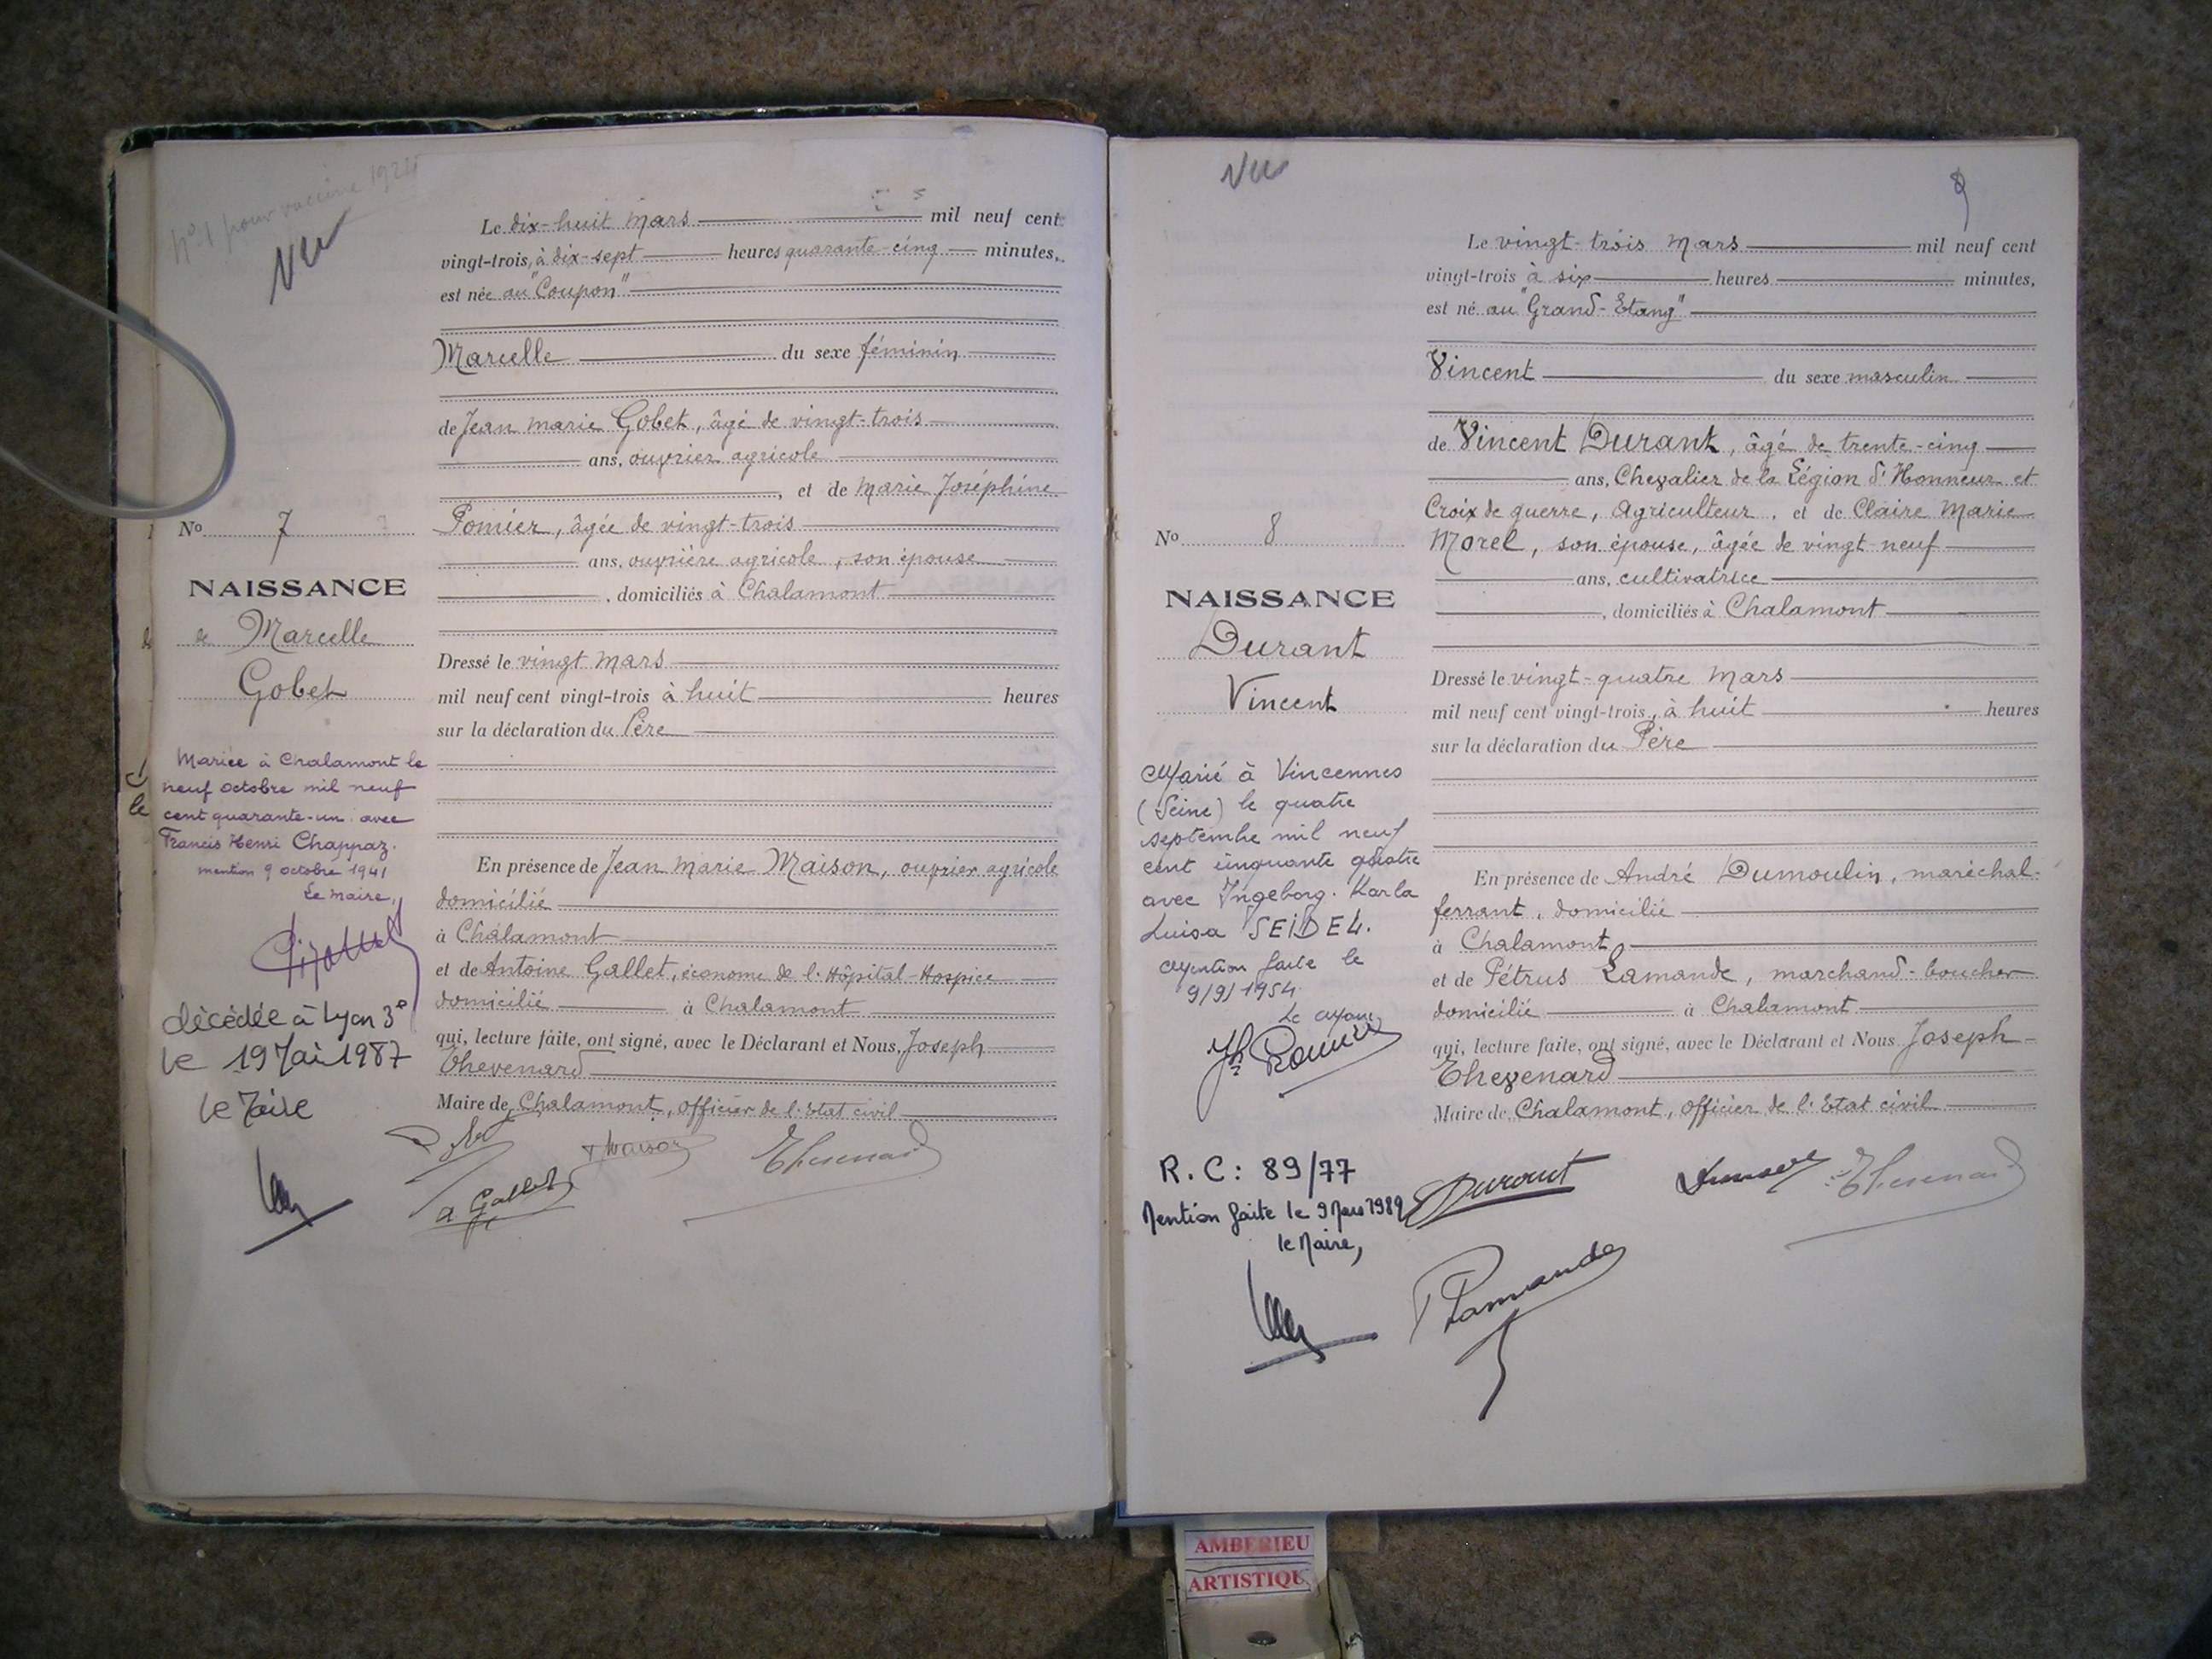 n° 1 pour vaccine 1924
Vu
Le dix-huit Mars mil neuf cent
vingt-trois, à dix-sept heures quarante-cinq minutes,
est née au "Coupon"
Marcelle du sexe féminin
de Jean Marie Gobet, âgé de vingt-trois
ans, ouvrier agricole
, et de Marie Joséphine
Pomier, âgée de vingt-trois
ans, ouvrière agricole, son épouse
, domiciliés à Chalamont
Dressé le vingt Mars
mil neuf cent vingt-trois à huit heures
sur la déclaration du Père
En présence de Jean Marie Maison, ouvrier agricole
domicilié
à Chalamont
et de Antoine Gallet, économe de l'Hôpital-Hospice
domicilié à Chalamont
qui, lecture faite, ont signé, avec le Déclarant et Nous, Joseph
Thevenard
Maire de Chalamont, officier de l'Etat civil
a Gallet
Thevenard
No 7
NAISSANCE
de Marcelle
Gobet
Mariée à Chalamont le
neuf octobre mil neuf
cent quarante-un avec
Francis Henri Chappaz.
mention 9 octobre 1941
Le Maire,
décédée à Lyon 3e
le 19 Mai 1987
le Maire
Vu
8
Le vingt-trois Mars mil neuf cent
vingt-trois à six heures minutes,
est né au "Grand-Etang"
Vincent du sexe masculin
de Vincent Durant, âgé de trente-cinq
ans, Chevalier de la Légion d'Honneur et
Croix de guerre, Agriculteur, et de Claire Marie
Morel, son épouse, âgée de vingt-neuf
ans, cultivatrice
, domiciliés à Chalamont
Dressé le vingt-quatre Mars
mil neuf cent vingt-trois, à huit heures
sur la déclaration du Père
En présence de André Dumoulin, maréchal-
ferrant, domicilié
à Chalamont
et de Pétrus Lamande, marchand-boucher
domicilié à Chalamont
qui, lecture faite, ont signé, avec le Déclarant et Nous Joseph
Thevenard
Maire de Chalamont, officier de l'Etat civil
Durant
Thevenard
P Lamande
No 8
NAISSANCE
Durant
Vincent
Marié à Vincennes
(Seine) le quatre
septembre mil neuf
cent cinquante quatre
avec Ingeborg. Karla
Luisa SEIDEL.
Mention faite le
9/9/1954
Le Maire
R.C: 89/77
Mention faite le 9 Mars 1989
le Maire,
AMBERIEU
ARTISTIQU